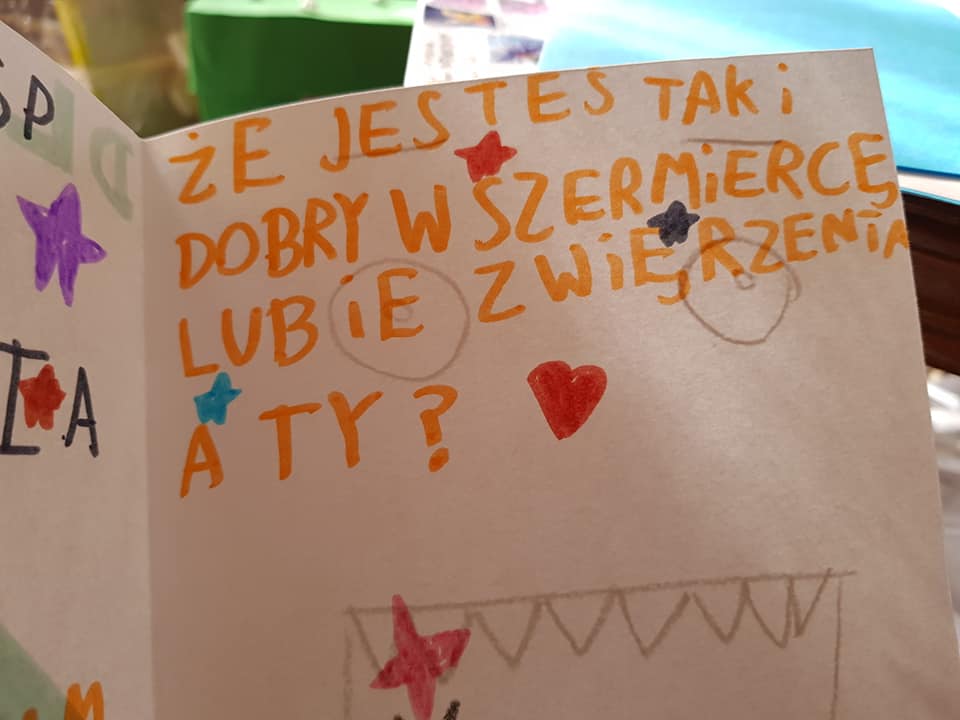 SP
ŻE JESTES TAKi
DOBRY W SZERMiERCĘ
LUBiE ZWiĘRZENiA
A TY?